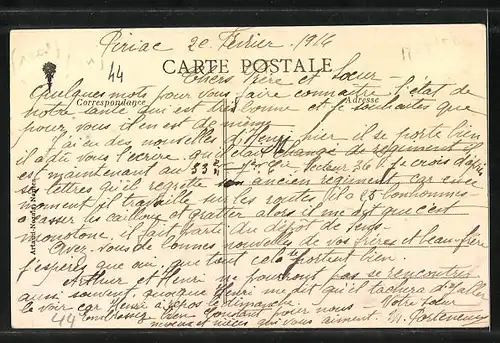 Piriac 2e Fevrier . 1916
44
CARTE POSTALE
Chers Frère et Sœur —
Quelques mots pour vous faire connaitre l'état de
Correspondance
Adresse
notre santé qui est très bonne et je souhaites que
pour vous il en est de même
J'ai eu des nouvelles d'Henri hier il se porte bien
il a dû vous l'ecrire qu'il était changé de regiment il
est maintenant au 53e Secteur 36 je crois d'après
se lettres qu'il regrette son ancien regiment car en ce
moment il travaille sur les routes il a 25 bonhommes
a casser les cailloux et gratter alors il me dit que c'est
monotone, il fait partie du dépôt de
Avez vous de bonnes nouvelles de vos frères et beau-frère
j'espères que oui que tout cela se portent bien.
Arthur et Henri ne pourront pas se rencontrer
aussi souvent quoique Henri me dit qu'il tachera d'aller
le voir car Henri a repos le dimanche. Votre sœur
44
Embrassez bien Constant pour nous
neveux et nièces qui vous aiment.